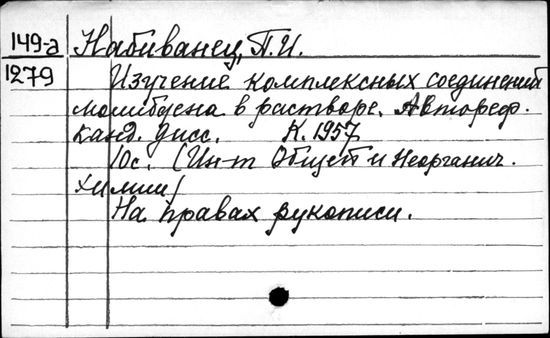 149-а
1279
Набиванец, П.И.
Изучение комплексных соединений
молибдена в растворе. Автореф.
канд. дисс. К. 1957
10с. (Ин-т Общей и Неорганич.
химии)
На правах рукописи.